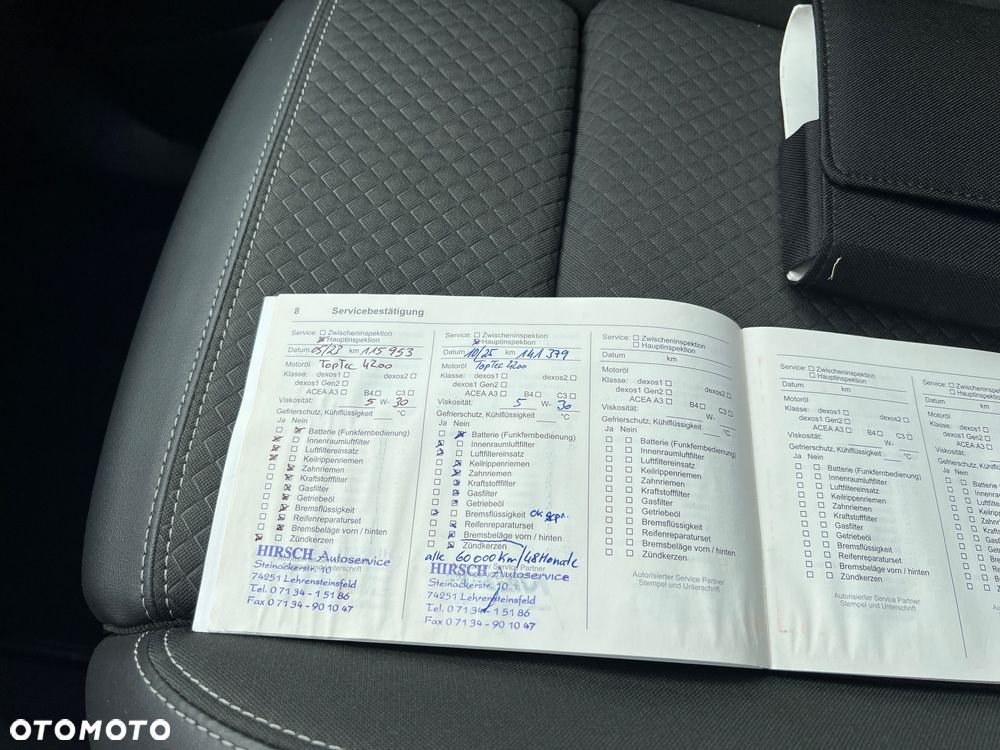 8 Servicebestätigung
Service: Zwischeninspektion
Hauptinspektion
Datum 05/23 km 115 953
Motoröl TopTec 4200
Klasse: dexos1 dexos2
dexos1 Gen2
ACEA A3 B4 C3
Viskosität: 5 W- 30
Gefrierschutz, Kühlflüssigkeit °C
Ja Nein
Batterie (Funkfernbedienung)
Innenraumluftfilter
Luftfiltereinsatz
Keilrippenriemen
Zahnriemen
Kraftstofffilter
Gasfilter
Getriebeöl
Bremsflüssigkeit
Reifenreparaturset
Bremsbeläge vorn / hinten
Zündkerzen
HIRSCH Autoservice
Steinäckerstr. 10
74251 Lehrensteinsfeld
Tel. 0 71 34 - 1 51 86
Fax 0 71 34 - 90 10 47
Service: Zwischeninspektion
Hauptinspektion
Datum 10/25 km 141 379
Motoröl TopTec 4200
Klasse: dexos1 dexos2
dexos1 Gen2
ACEA A3 B4 C3
Viskosität: 5 W- 30
Gefrierschutz, Kühlflüssigkeit °C
Ja Nein
Batterie (Funkfernbedienung)
Innenraumluftfilter
Luftfiltereinsatz
Keilrippenriemen
Zahnriemen
Kraftstofffilter
Gasfilter
Getriebeöl
Bremsflüssigkeit OK
Reifenreparaturset
Bremsbeläge vorn / hinten
Zündkerzen
alle 60 000 Km / 48 Monate
HIRSCH Autoservice
Steinäckerstr. 10
74251 Lehrensteinsfeld
Tel. 0 71 34 - 1 51 86
Fax 0 71 34 - 90 10 47
Service: Zwischeninspektion
Hauptinspektion
Datum km
Motoröl
Klasse: dexos1 dexos2
dexos1 Gen2
ACEA A3 B4 C3
Viskosität: W-
Gefrierschutz, Kühlflüssigkeit °C
Ja Nein
Batterie (Funkfernbedienung)
Innenraumluftfilter
Luftfiltereinsatz
Keilrippenriemen
Zahnriemen
Kraftstofffilter
Gasfilter
Getriebeöl
Bremsflüssigkeit
Reifenreparaturset
Bremsbeläge vorn / hinten
Zündkerzen
Autorisierter Service Partner
Stempel und Unterschrift
Service: Zwischeninspektion
Hauptinspektion
Datum km
Motoröl
Klasse: dexos1 dexos2
dexos1 Gen2
ACEA A3 B4 C3
Viskosität: W-
Gefrierschutz, Kühlflüssigkeit °C
Ja Nein
Batterie (Funkfernbedienung)
Innenraumluftfilter
Luftfiltereinsatz
Keilrippenriemen
Zahnriemen
Kraftstofffilter
Gasfilter
Getriebeöl
Bremsflüssigkeit
Reifenreparaturset
Bremsbeläge vorn / hinten
Zündkerzen
Autorisierter Service Partner
Stempel und Unterschrift
Service:
Datum
Motoröl
Klasse: dexos1
dexos1 Gen2
ACEA A3
Viskosität:
Ja Nein
OTOMOTO